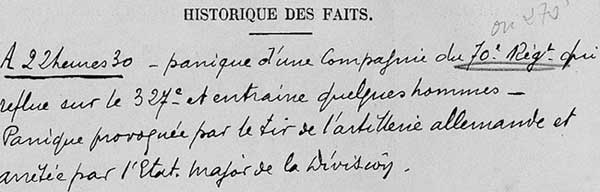 HISTORIQUE DES FAITS.
ou 270ᵉ
A 22 heures 30 – panique d'une Compagnie du 70ᵉ Régᵗ qui
reflue sur le 327ᵉ et entraine quelques hommes –
Panique provoquée par le tir de l'artillerie allemande et
arrêtée par l'Etat. Major de la Division.